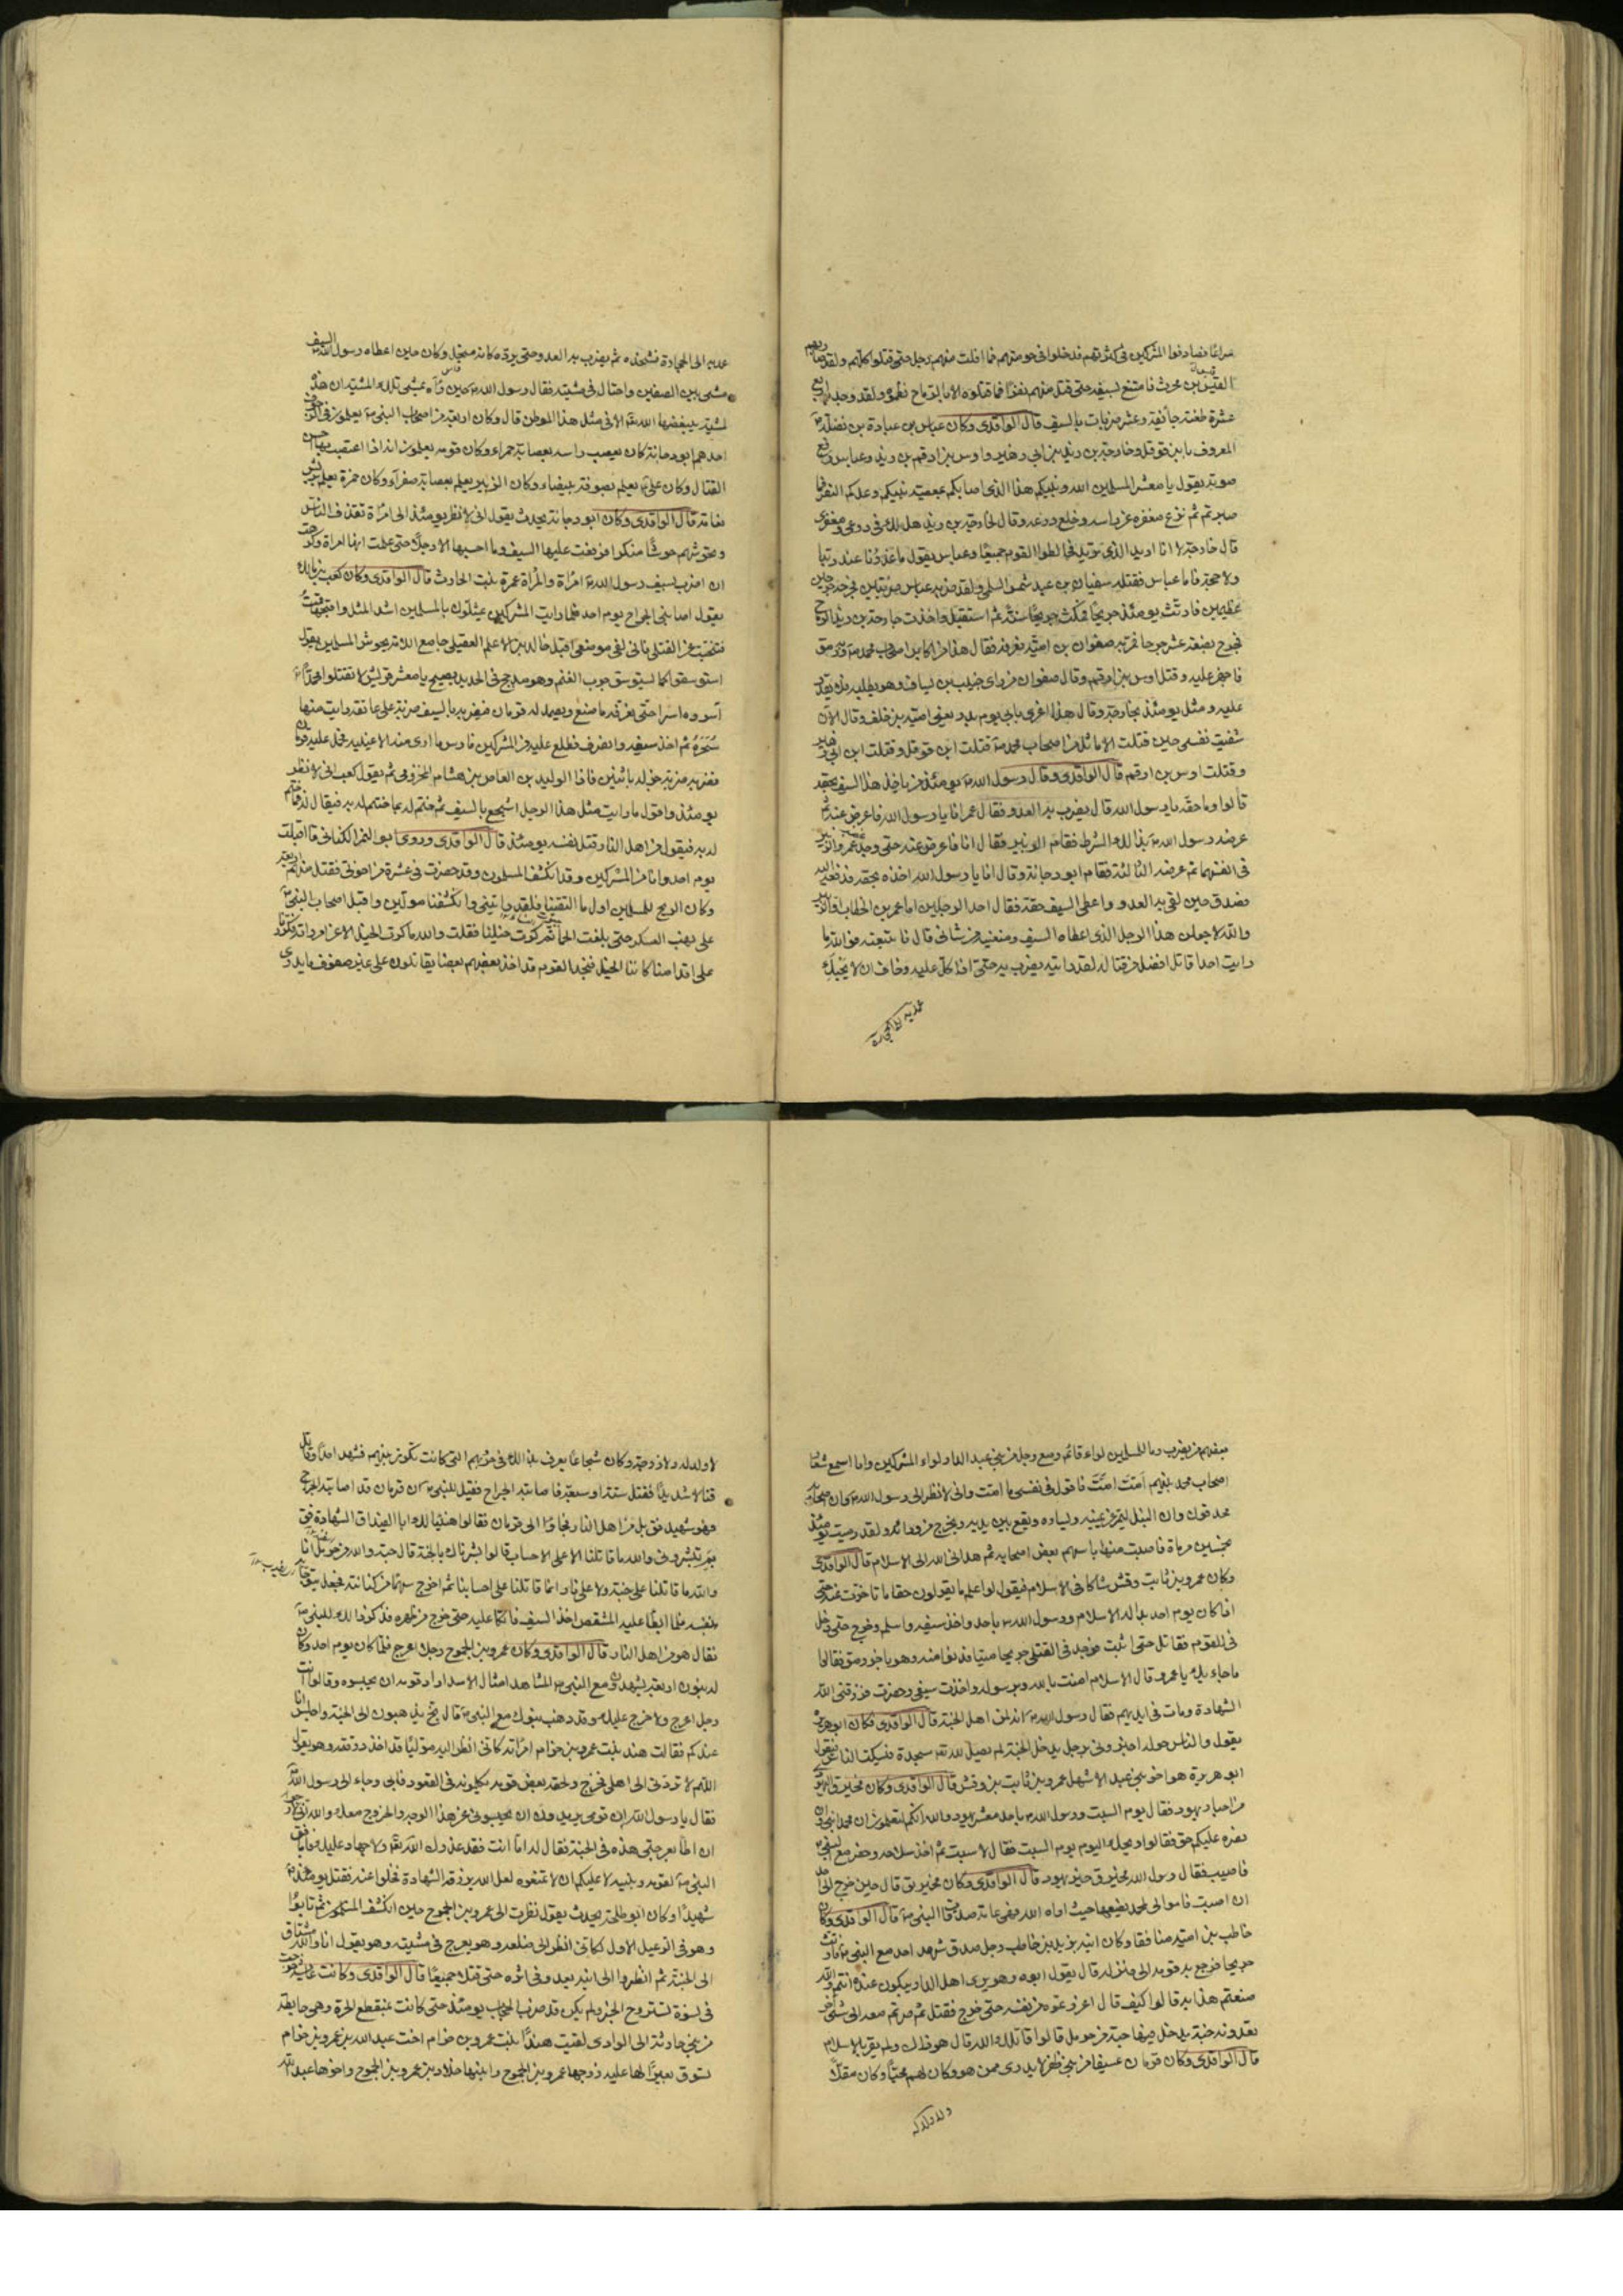 سراعا فصادفوا المشركين في كثرتهم فدخلوا في حومتهم فما افلت منهم رجل حتى قتلوا كلهم ولقد ضاربهم
القيس بن محرث فامتنع بسيفه حتى قتل منهم نفرا فما قتلوه الا بالرماح نظموه ولقد وجد به اربع
عشرة طعنة جائفة وعشر ضربات بالسيف قال الواقدى وكان عباس بن عبادة بن نضلة
المعروف بابن قوقل وخارجة بن زيد بن ابي زهير واوس بن ارقم بن زيد وعباس رافع
صوته يقول يا معشر المسلمين الله ونبيكم هذا الذي اصابكم بمعصية نبيكم وعدكم النصر فما
صبرتم ثم نزع مغفره عن راسه وخلع درعه وقال لخارجة بن زيد هل لك في درعي ومغفري
قال خارجة لا انا اريد الذي تريد فخالطوا القوم جميعا وعباس يقول ما عذرنا عند ربنا
ولا حجة فاما عباس فقتله سفيان بن عبد شمس السلمي ولقد ضربه عباس ضربتين فجرحه جرحين
عظيمين فارتث يومئذ جريحا فمكث جريحا سنة ثم استقبل واخذت خارجة بن زيد الرماح
فجرح بضعة عشر جرحا فمر به صفوان بن امية فعرفه فقال هذا من اكابر اصحاب محمد وبه رمق
فاجهز عليه وقتل اوس بن ارقم وقال صفوان من راى خبيب بن يساف وهو يطلبه فلا يقدر
عليه ومثل يومئذ بخارجة وقال هذا اغرى بابي يوم بدر يعني امية بن خلف وقال الان
شفيت نفسي حين قتلت الاماثل من اصحاب محمد قتلت ابن قوقل وقتلت ابن ابي زهير
وقتلت اوس بن ارقم قال الواقدى وقال رسول الله يومئذ من ياخذ هذا السيف بحقه
قالوا وما حقه يا رسول الله قال يضرب به العدو فقال عمر انا يا رسول الله فاعرض عنه ثم
عرضه رسول الله بذلك الشرط فقام الزبير فقال انا فاعرض عنه حتى وجد عمر والزبير
في انفسهما ثم عرضه الثالثة فقام ابو دجانة وقال انا يا رسول الله اخذه بحقه فدفعه اليه
فصدق حين لقي به العدو واعطى السيف حقه فقال احد الرجلين اما عمر بن الخطاب او الزبير
والله لاجعلن هذا الرجل الذي اعطاه السيف ومنعنيه من شاني قال فاتبعته فوالله ما
رايت احدا قاتل افضل من قتاله لقد رايته يضرب به حتى اذا كل عليه وخاف ان لا يحيك
عمد به الى الحجارة
عمد به الى الحجارة فشحذه ثم يضرب به العدو حتى يرده كانه منجل وكان حين اعطاه رسول الله السيف
مشى بين الصفين واختال في مشيته فقال رسول الله حين راه يمشي تلك المشية ان هذه
لمشية يبغضها الله الا في مثل هذا الموطن قال وكان اربعة من اصحاب النبي يعلمون في الزحوف
احدهم ابو دجانة كان يعصب راسه بعصابة حمراء وكان قومه يعلمون انه اذا اعتصب بها احسن
القتال وكان علي يعلم بصوفة بيضاء وكان الزبير يعلم بعصابة صفراء وكان حمزة يعلم بريش
نعامة قال الواقدى وكان ابو دجانة يحدث يقول اني لانظر يومئذ الى امراة تقذف الناس
وتحوشهم حوشا منكرا فرفعت عليها السيف وما احسبها الا رجلا حتى علمت انها امراة وكرهت
ان اضرب بسيف رسول الله امراة والمراة عمرة بنت الحارث قال الواقدى وكان كعب بن مالك
يقول اصابني الجراح يوم احد فلما رايت المشركين يمثلون بالمسلمين اشد المثل واقبحها قمت
فتنحيت عن القتلى فاني لفي موضعي اقبل خالد بن الاعلم العقيلي جامع اللامة يحوش المسلمين يقول
استوسقوا كما يستوسق جرب الغنم وهو مدجج في الحديد يصيح يا معشر قريش لا تقتلوا محمدا
ائسروه اسرا حتى نعرفه ما صنع ويصمد له قزمان فيضربه بالسيف ضربة على عاتقه رايت منها
سحره ثم اخذ سيفه وانصرف فطلع عليه من المشركين فارس ما ارى منه الا عينيه فحمل عليه قزمان
فضربه ضربة جزله باثنين فاذا الوليد بن العاص بن هشام المخزومي ثم يقول كعب اني لانظر
يومئذ واقول ما رايت مثل هذا الرجل اشجع بالسيف ثم ختم له بما ختم له به فيقال فما ختم
له به فيقول من اهل النار قتل نفسه يومئذ قال الواقدى وروى ابو النمر الكناني قال اقبلت
يوم احد وانا من المشركين وقد انكشف المسلمون وقد حضرت في عشرة من اخوتي فقتل منهم اربعة
وكان الريح للمسلمين اول ما التقينا فلقد رايتني وانكشفنا مولين واقبل اصحاب النبي
على نهب العسكر حتى بلغت الجماء ثم كرت خيلنا فقلت والله ما كرت الخيل الا عن امر راته فكررنا
على اقدامنا كاننا الخيل فنجد القوم قد اخذ بعضهم بعضا يقاتلون على غير صفوف ما يدري
بعضهم من يضرب وما للمسلمين لواء قائم ومع رجل من بني عبد الدار لواء المشركين وانا اسمع شعار
اصحاب محمد بينهم امت امت فاقول في نفسي ما امت واني لانظر الى رسول الله وان اصحابه
محدقون وان النبل لتمر عن يمينه ويساره وتقع بين يديه ويخرج من ورائه ولقد رميت يومئذ
بخمسين مرماة فاصبت منها باسهم بعض اصحابه ثم هداني الله الى الاسلام قال الواقدى
وكان عمرو بن ثابت وقش شاكا في الاسلام فيقول لو اعلم ما يقولون حقا ما تاخرت عنه حتى
اذا كان يوم احد بدا له الاسلام ورسول الله باحد واخذ سيفه واسلم وخرج حتى دخل
في القوم فقاتل حتى اثبت فوجد في القتلى جريحا ميتا فدنوا منه وهو باخر رمق فقالوا
ما جاء بك يا عمرو قال الاسلام امنت بالله وبرسوله واخذت سيفي وحضرت فرزقني الله
الشهادة ومات في ايديهم فقال رسول الله انه لمن اهل الجنة قال الواقدى فكان ابو هريرة
يقول والناس حوله اخبروني برجل يدخل الجنة لم يصل لله سجدة فيسكت الناس فيقول
ابو هريرة هو اخو بني عبد الاشهل عمرو بن ثابت بن وقش قال الواقدى وكان مخيريق اليهودي
من احبار يهود فقال يوم السبت ورسول الله باحد يا معشر يهود والله انكم لتعلمون ان محمدا نبي وان
نصره عليكم حق فقالوا ويحك اليوم يوم السبت فقال لا سبت ثم اخذ سلاحه وحضر مع النبي
فاصيب فقال رسول الله مخيريق خير يهود قال الواقدى وكان مخيريق قال حين خرج الى احد
ان اصبت فاموالي لمحمد يضعها حيث اراه الله فهي عامة صدقات النبي قال الواقدى وكان
حاطب بن امية منافقا وكان ابنه يزيد بن حاطب رجل صدق شهد احد مع النبي فارتث
جريحا فرجع به قومه الى منزله قال يقول ابوه وهو يرى اهل الدار يبكون عنده انتم والله
صنعتم هذا به قالوا كيف قال اغررتموه من نفسه حتى خرج فقتل ثم صرتم معه الى شيء اخر
تعدونه جنة يدخل فيها جنة من حرمل قالوا قاتلك الله قال هو ذاك ولم يقر بالاسلام
قال الواقدى وكان قزمان عسيفا من بني ظفر لا يدرى ممن هو وكان لهم محبا وكان مقلا
ولا ولد له
لا ولد له ولا زوجة وكان شجاعا يعرف بذلك في حروبهم التي كانت تكون بينهم فشهد احدا وقاتل
قتالا شديدا فقتل ستة او سبعة فاصابته الجراح فقيل للنبي ان قزمان قد اصابته الجراح
فهو شهيد فقال بل من اهل النار فجاؤا الى قزمان فقالوا هنيئا لك ابا الغيداق الشهادة فقال
بم تبشرونني والله ما قاتلنا الا على الاحساب قالوا بشرناك بالجنة قال جنة والله من حرمل انا
والله ما قاتلنا على جنة ولا على نار انما قاتلنا على احسابنا ثم اخرج سهما من كنانته فجعل يتوجا
بنفسه فلما ابطا عليه المشقص اخذ السيف فاتكا عليه حتى خرج من ظهره فذكروا ذلك للنبي
فقال هو من اهل النار قال الواقدى وكان عمرو بن الجموح رجلا اعرج فلما كان يوم احد وكان
له بنون اربعة يشهدون مع النبي المشاهد امثال الاسد اراد قومه ان يحبسوه وقالوا انت
رجل اعرج ولا حرج عليك وقد ذهب بنوك مع النبي قال بخ يذهبون الى الجنة واجلس انا
عندكم فقالت هند بنت عمرو بن حزام امراته كاني انظر اليه موليا قد اخذ درقته وهو يقول
اللهم لا تردني الى اهلي فخرج ولحقه بعض قومه يكلمونه في القعود فابى وجاء الى رسول الله
فقال يا رسول الله ان قومي يريدون ان يحبسوني عن هذا الوجه والخروج معك والله اني لارجو
ان اطا بعرجتي هذه في الجنة فقال له اما انت فقد عذرك الله ولا جهاد عليك فابى فقال
النبي لقومه وبنيه لا عليكم ان لا تمنعوه لعل الله يرزقه الشهادة فخلوا عنه فقتل يومئذ
شهيدا وكان ابو طلحة يحدث يقول نظرت الى عمرو بن الجموح حين انكشف المسلمون ثم ثابوا
وهو في الرعيل الاول لكاني انظر الى ضلعه وهو يعرج في مشيته وهو يقول انا والله مشتاق
الى الجنة ثم انظروا الى ابنه يعدو في اثره حتى قتلا جميعا قال الواقدى وكانت عايشة خرجت
في نسوة تستروح الخبر ولم يكن قد ضرب الحجاب يومئذ حتى كانت بمنقطع الحرة وهي هابطة
من بني حارثة الى الوادي لقيت هندا بنت عمرو بن حزام اخت عبد الله بن عمرو بن حزام
تسوق بعيرا لها عليه زوجها عمرو بن الجموح وابنها خلاد بن عمرو بن الجموح واخوها عبد الله